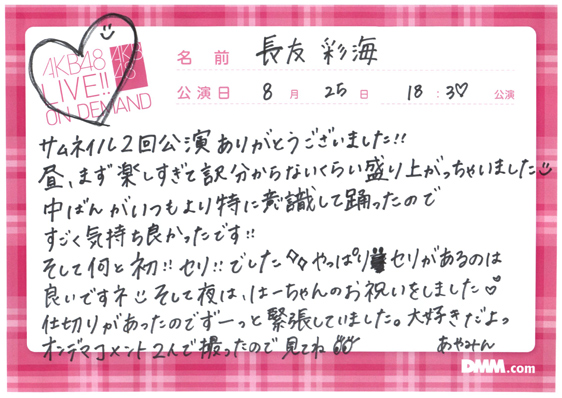 AKB48
LIVE!!
ON DEMAND
AKB
48
名前 長友 彩海
公演日 8月 25日 18:30 公演
サムネイル2回公演ありがとうございました!!
昼、まず楽しすぎて訳分からないくらい盛り上がっちゃいました
中ばんがいつもより特に意識して踊ったので
すごく気持ち良かったです!!
そして何と初!!セリ!!でした やっぱり セリがあるのは
良いですネ そして夜は、はーちゃんのお祝いをしました
仕切りがあったのでずーっと緊張していました。大好きだよっ
オンデマコメント2人で撮ったので見てね
あやみん
DMM.com